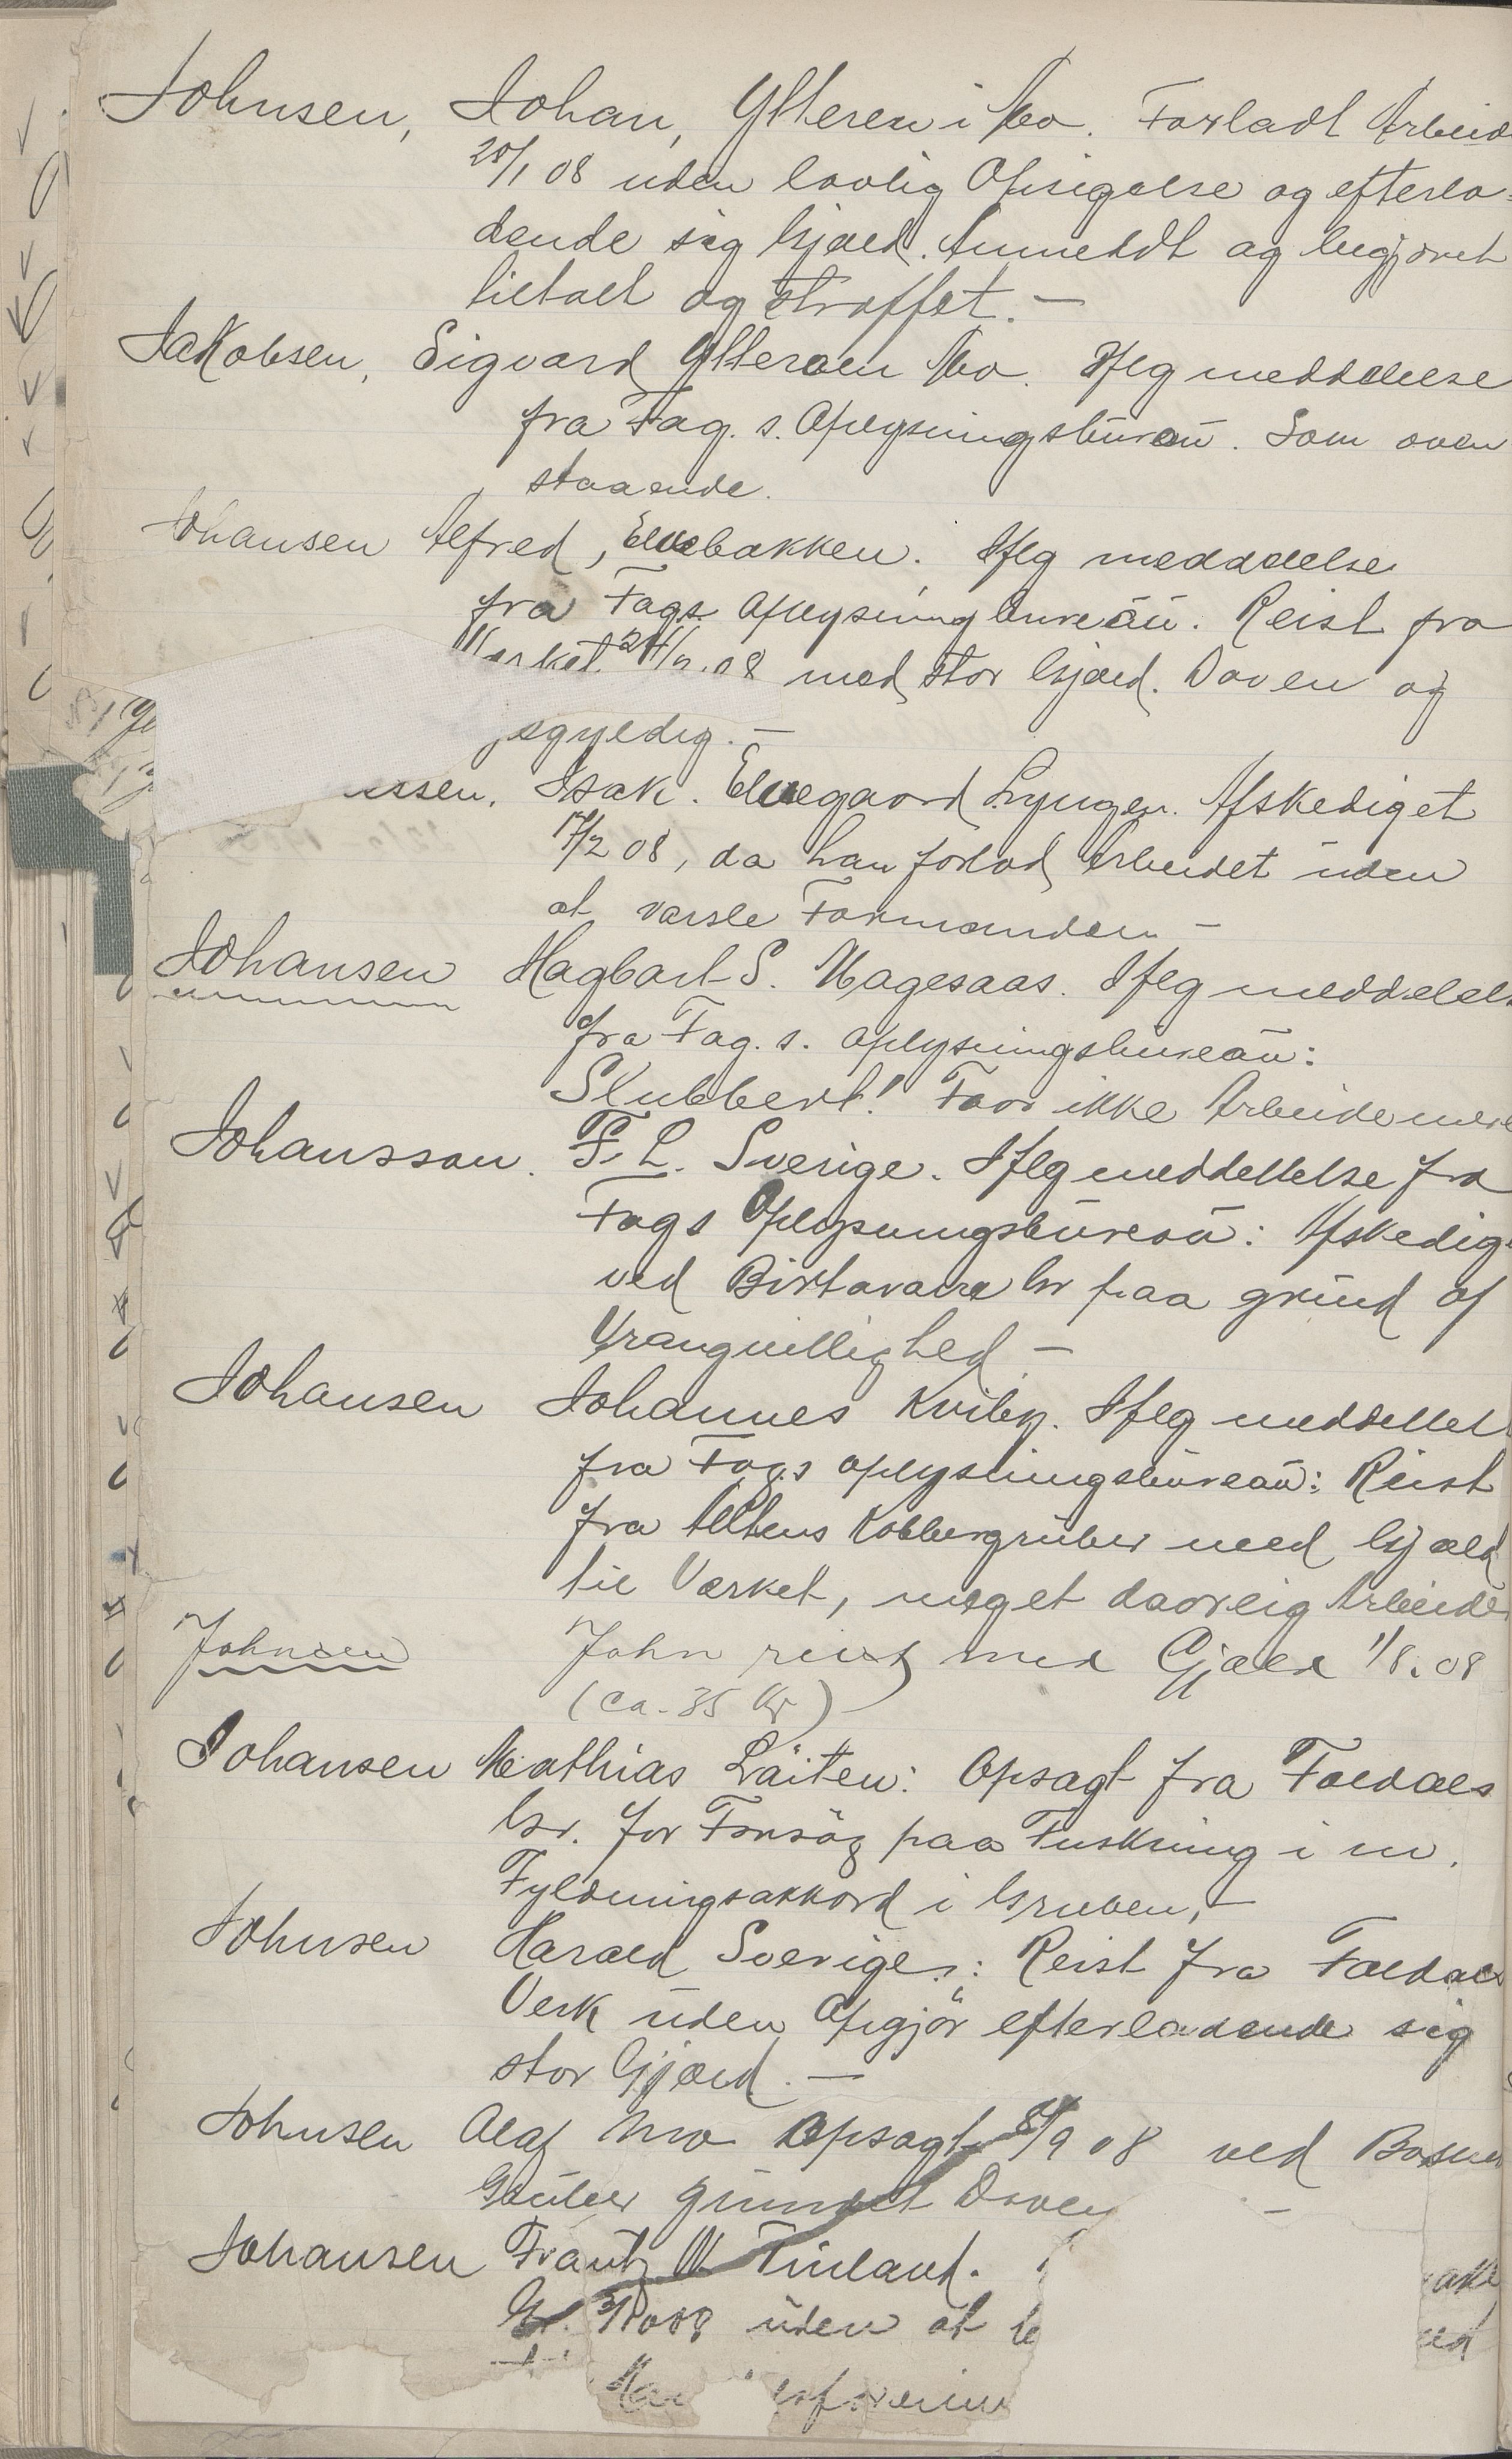 Johnsen, Johan, Ytteren i Mo. Forladt Arbeid
28/1 08 uden lovlig Opsigelse og efterla-
dende sig Gjæld. Anmeldt og begjæret
tiltalt og straffet. —
Jakobsen, Sigvard Ytteren Mo. Iflg meddelelse
fra Fag. s. Oplysningsbureau. Som oven
staaende.
Johansen Alfred, Elvebakken. Iflg meddelelse
fra Fags. Oplysningbureau. Reist fra
Værket 24/ 08 med stor Gjæld. Doven og
sgyldig. —
ssen, Isak. Elvegaard Lyngen. Afskediget
17/2 08, da han forlod Arbeidet uden
at varsle Formanden —
Johansen Hagbart S. Hagesaas. Iflg meddelels
fra Fag. s. oplysningsbureau:
Slubbert! Faar ikke Arbeide mere
Johansson. F. L. Sverige. Iflg meddellelse fra
Fags Oplysningsbureau: Afskedig
ved Birtavarre Gr paa grund af
Vrangvillighed —
Johansen Johannes Kviby. Iflg meddellel
fra Fags oplysningsbureau: Reist
fra Altens Kobbergruber med Gjæld
til Værket, meget daarlig Arbeide
Johnsen John reist med Gjæld 1/8. 08
(ca. 35 Kr)
Johansen Mathias Läiten: Opsagt fra Foldals
Gr. for Forsög paa Tuskning i m.
Fyldningsakkord i Gruben, —
Johnsen Harald Sverige: Reist fra Foldals
Verk uden Opgjör efterladende sig
stor Gjæld. —
Johnsen Olaf Mo Opsagt 8/9 08 ved Bosmo
Gruber grundet Doven —
Johansen Frantz W Finland.
Gr. uden at